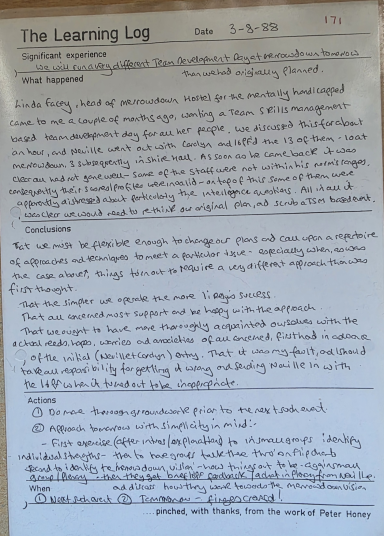 171
The Learning Log Date 3-3-88
Significant experience
We will run a very different Team Development Day at Merrowdown tomorrow
than we had originally planned.
What happened
Linda Facey, head of Merrowdown Hostel for the mentally handicapped
came to me a couple of months ago, wanting a Team Skills management
based team development day for all her people. We discussed this for about
an hour, and Neville went out with Carolyn and 16PF'd the 13 of them - 10 at
merrowdown. 3 subsequently in Shire Hall. As soon as he came back it was
clear all had not gone well - some of the staff were not within his norms ranges,
consequently their scored profiles were invalid - on top of this some of them were
apparently distressed about particularly the intelligence questions. All in all it
was clear we would need to re-think our original plan, and scrub a TSM based event.
Conclusions
That we must be flexible enough to change our plans and call upon a repertoire
of approaches and techniques to meet a particular issue - especially when, as was
the case above, things turn out to require a very different approach than was
first thought.
That the simpler we operate the more likely is success.
That all concerned most support and be happy with the approach.
That we ought to have more thoroughly acquainted ourselves with the
actual needs, hopes, worries and anxieties of all concerned, first hand in advance
of the initial (Neville + Carolyn) entry. That it was my fault, and I should
take all responsibility for getting it wrong and sending Neville in with
the 16PF when it turned out to be inappropriate.
Actions
① Do more thorough groundwork prior to the next such event.
② Approach tomorrow with simplicity in mind:-
- First exercise (after intros/explanation) to in small groups identify
individual strengths - then to have groups talk these thro' on flipcharts
second to identify the merrowdown vision - how things ought to be - again small
group / plenary - then they get one
and discuss how they work towards the merrowdown vision
When
① Next such event ② Tomorrow - fingers crossed!
....pinched, with thanks, from the work of Peter Honey